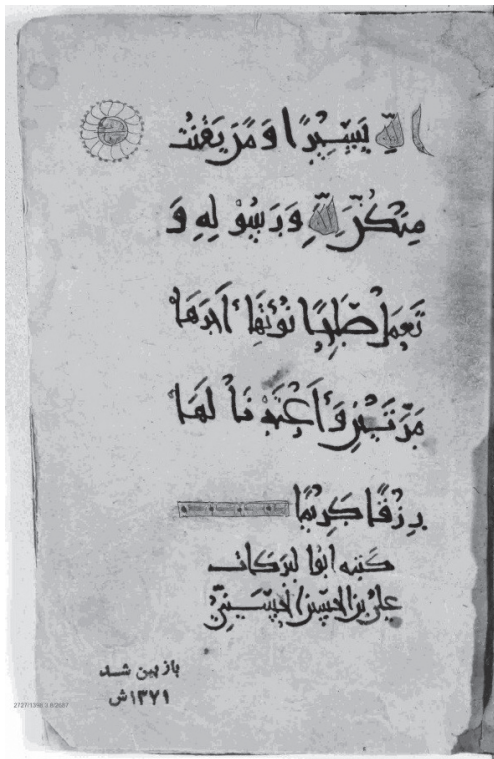 الله يَسِيرًا وَمَن يَقْنُتْ
مِنكُنَّ لِلَّهِ وَرَسُولِهِ وَ
تَعْمَلْ صَالِحًا نُؤْتِهَا أَجْرَهَا
مَرَّتَيْنِ وَأَعْتَدْنَا لَهَا
رِزْقًا كَرِيمًا
كتبه ابو البركات
علي بن الحسين الحسيني
بازبین شد
۱۳۷۱ش
2727/1398.3.8/2687